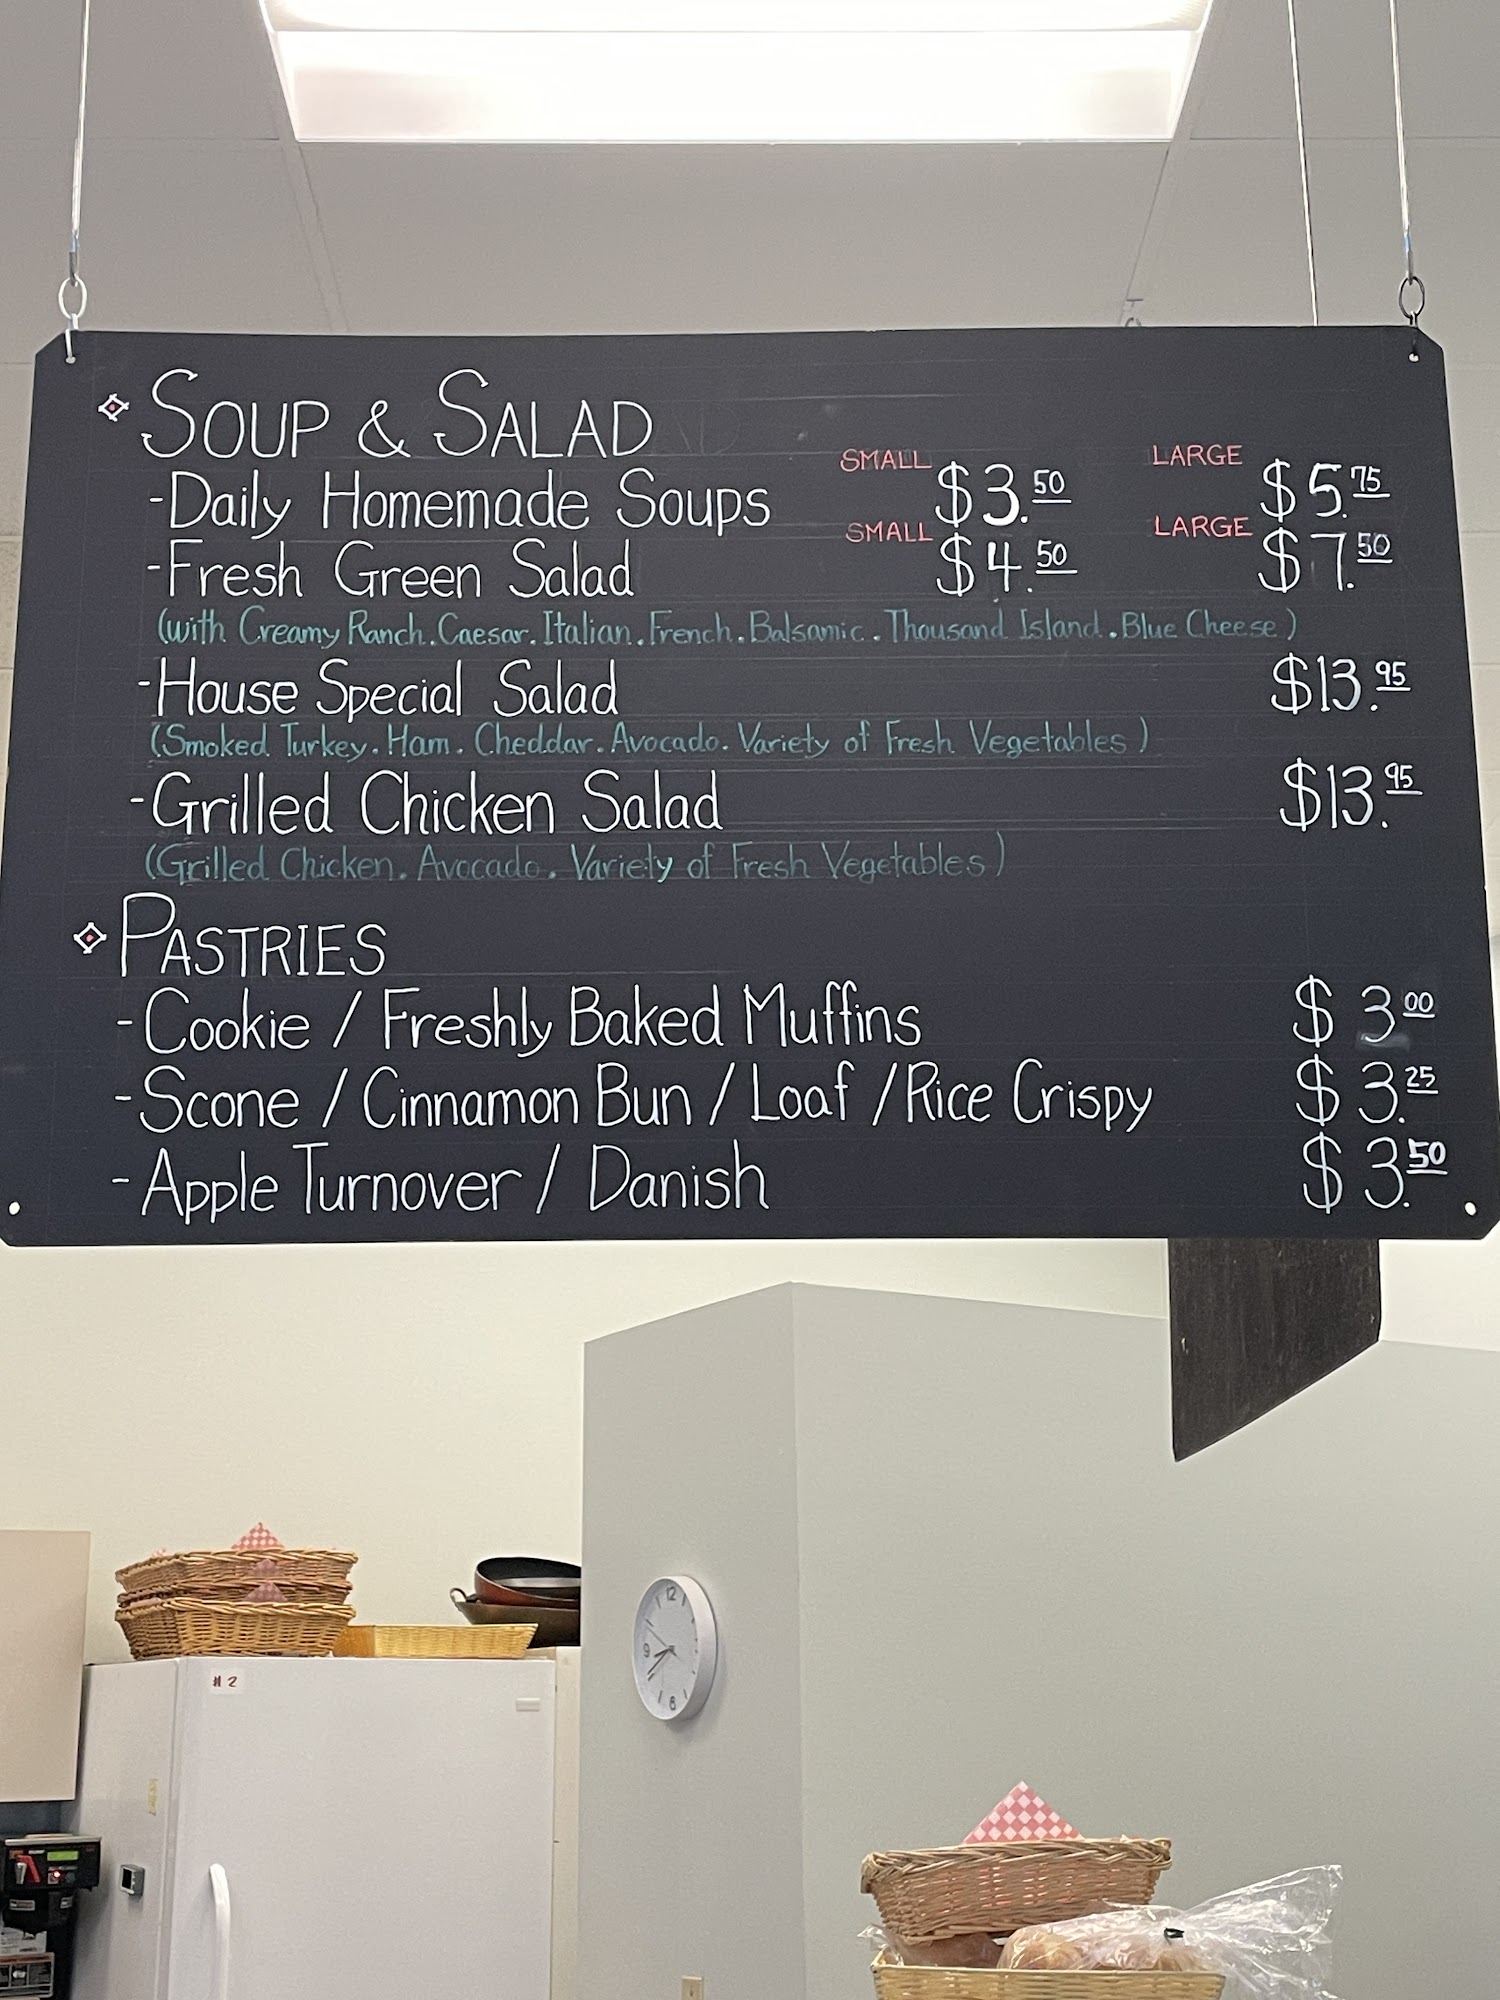 SOUP & SALAD
-Daily Homemade Soups SMALL $3.50 LARGE $5.75
-Fresh Green Salad SMALL $4.50 LARGE $7.50
(with Creamy Ranch. Caesar. Italian. French. Balsamic. Thousand Island. Blue Cheese)
-House Special Salad $13.95
(Smoked Turkey. Ham. Cheddar. Avocado. Variety of Fresh Vegetables)
-Grilled Chicken Salad $13.95
(Grilled Chicken. Avocado. Variety of Fresh Vegetables)
PASTRIES
-Cookie / Freshly Baked Muffins $3 00
-Scone / Cinnamon Bun / Loaf / Rice Crispy $3.25
-Apple Turnover / Danish $3.50
12
9
6
# 2